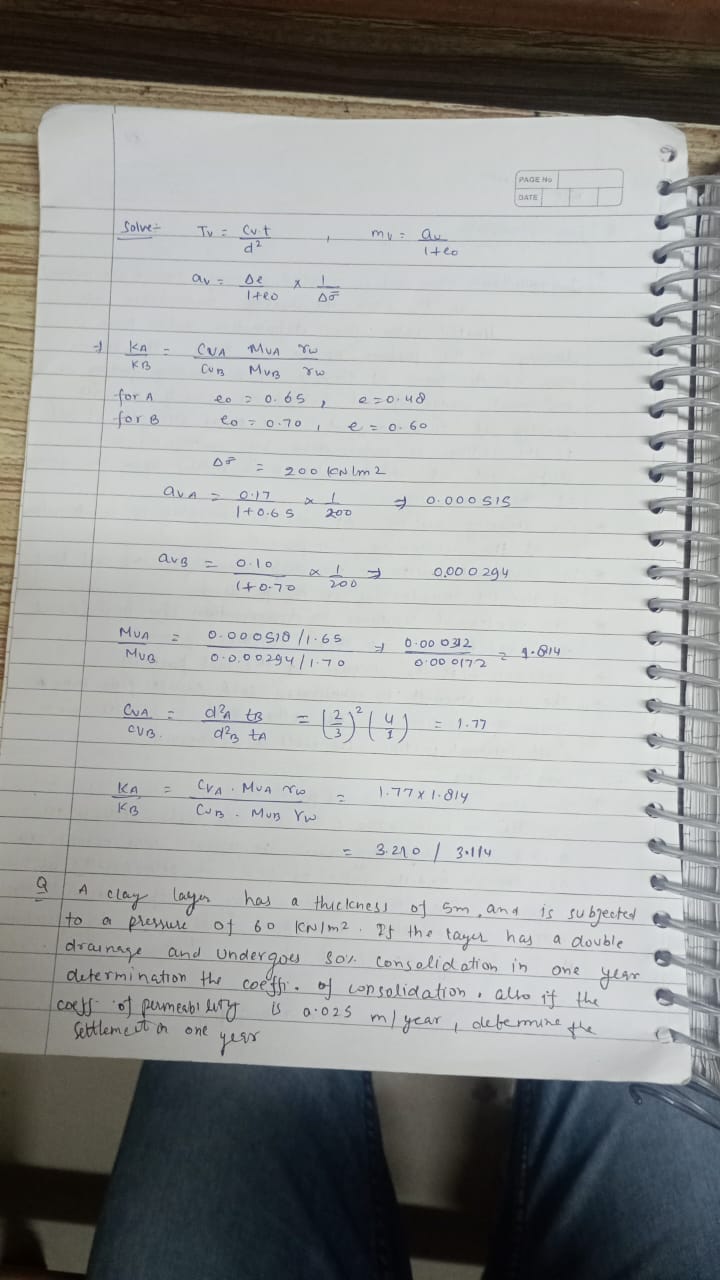 PAGE No
DATE
Solve:- Tv = Cv.t / d² , mv = av / 1+eo
av = Δe / 1+eo × 1 / Δσ̄
⇒ KA / KB = CVA MVA rw / CVB MVB rw
for A eo = 0.65 , e = 0.48
for B eo = 0.70 , e = 0.60
Δσ̄ = 200 KN/m2
avA = 0.17 / 1+0.65 × 1 / 200 ⇒ 0.000515
avB = 0.10 / 1+0.70 × 1 / 200 ⇒ 0.000294
MVA / MVB = 0.000518/1.65 / 0.0.00294/1.70 ⇒ 0.000312 / 0.000172 = 1.814
CVA / CVB. = d²A tB / d²B tA = (2/3)² (4/1) = 1.77
KA / KB = CVA . MVA rw / CVB . MVB rw = 1.77 x 1.814
= 3.210 / 3.114
Q A clay layer has a thickness of 5m, and is subjected
to a pressure of 60 KN/m2. If the layer has a double
drainage and undergoes 50% consolidation in one year
determination the coeffi. of consolidation. also if the
coeff. of permeability is 0.025 m/year, determine the
Settlement in one year